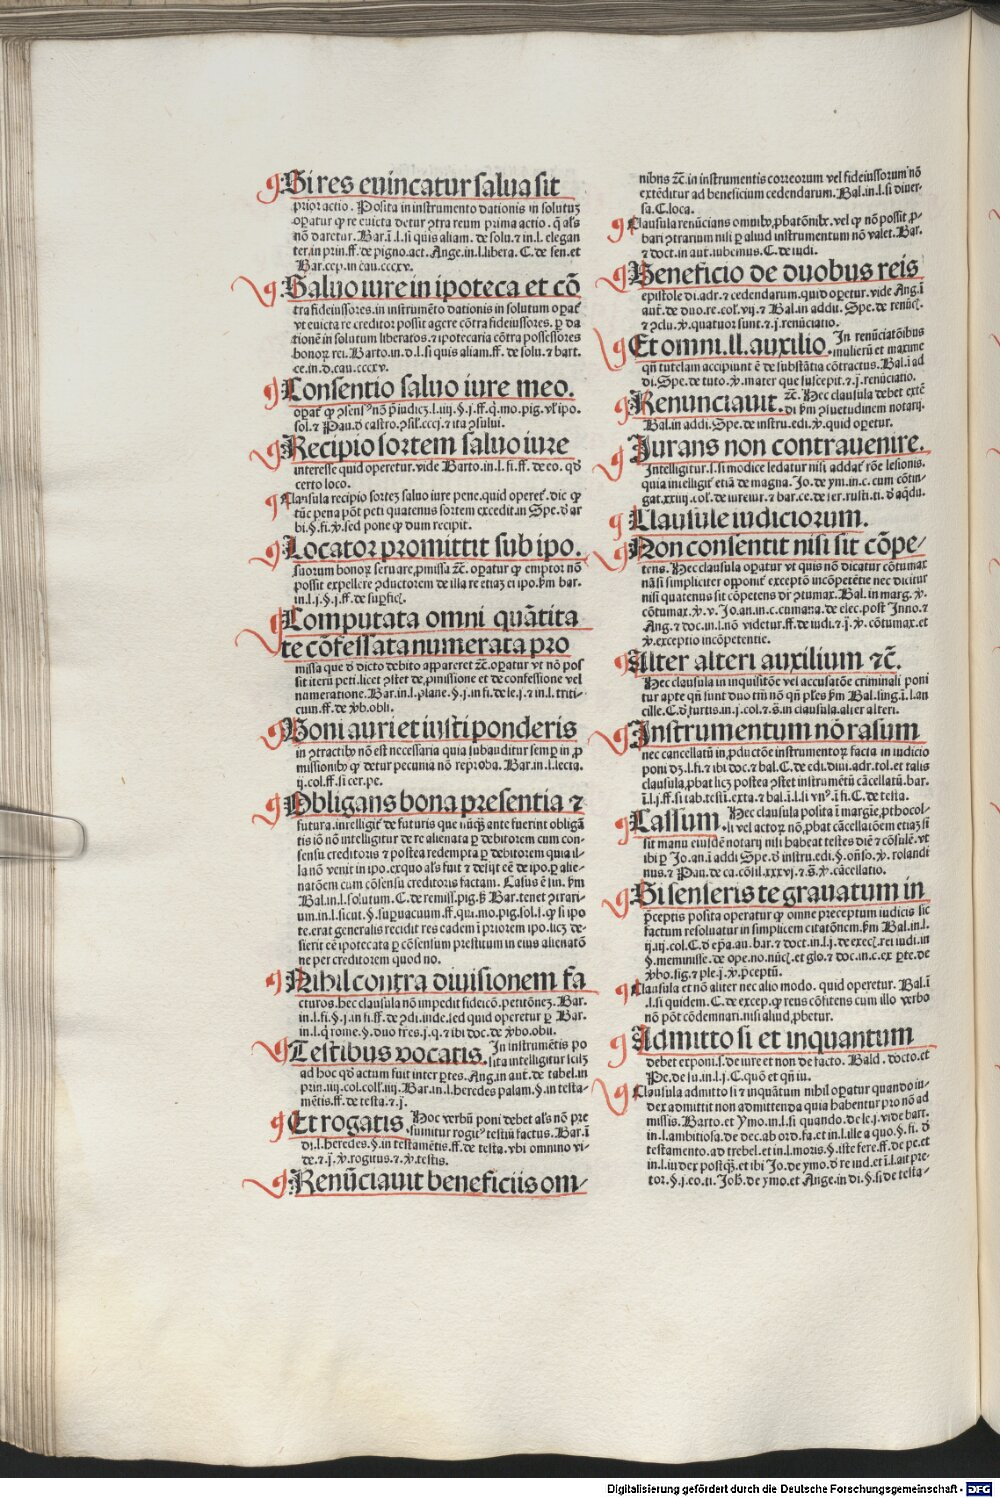 Si res euincatur salua sit
prior actio. Posita in instrumento dationis in solutuꝫ
oꝑatur ꝙ re euicta detur ꝯtra reum prima actio. q̄ als
nō daretur. Bar. ī. l. si quis aliam. de solu. ⁊ in. l. elegan
ter. in prin. ff. de pigno. act. Ange. in. l. libera. C. de sen. et
Bar. cep. in cau. cccxv.
Saluo iure in ipoteca et cō
tra fideiussores. in instrumēto dationis in solutum oꝑat̄
vt euicta re creditor possit agere cōtra fideiussores. ꝑ da
tionē in solutum liberatos. ⁊ ipotecaria cōtra possessores
bonoꝝ rei. Barto. in. d. l. si quis aliam. ff. de solu. ⁊ bart.
ce. in. d. cau. cccxv.
Consentio saluo iure meo.
sol. ⁊ Pau. d̄ castro. ꝯsil. cccj. ⁊ ita ꝯsului.
Recipio sortem saluo iure
interesse quid operetur. vide Barto. in. l. fi. ff. de eo. qd̄
certo loco.
Clausula recipio sorteꝫ saluo iure pene. quid operet̄. dic ꝙ
tūc pena pōt peti quatenus sortem excedit. in Spe. d̄ ar
bi. §. fi. ꝟ. sed pone ꝙ dum recipit.
Locator promittit sub ipo.
suorum bonoꝝ seruare ꝓmissa ⁊c̄. oꝑatur ꝙ emptor nō
possit expellere ꝯductorem de illa re etiaꝫ ei ipo. ẜm bar.
in. l. j. §. j. ff. de suꝑfic̄.
Computata omni quātita
te cōfessata numerata pro
missa que d̄ dicto debito appareret ⁊c̄. oꝑatur vt nō pos
sit iteꝝ peti. licet ꝯstet de ꝓmissione et de confessione vel
numeratione. Bar. in. l. plane. §. j. in fi. de le. j. ⁊ in. l. triti-
cum. ff. de ꝟb. obli.
Boni auri et iusti ponderis
in ꝯtractibꝰ nō est necessaria quia subauditur semꝑ in ꝓ
missionibꝰ ꝙ detur pecunia nō reproba. Bar. in. l. lecta.
ij. col. ff. si cer. pe.
Obligans bona presentia ⁊
futura. intelligit̄ de futuris que nūqꝫ ante fuerint obliga
tis iō nō intelligitur de re alienata ꝑ debitorem cum con-
sensu creditoris ⁊ postea redempta ꝑ debitorem quia il-
la nō venit in ipo. exquo als fuit ⁊ desijt eē de ipo. ꝑ alie-
natōem cum cōsensu creditoris factam. Casus ē sin. ẜm
Bal. in. l. solutum. C. de remiss. pig. ꝫ Bar. tenet ꝯtrari-
um. in. l. sicut. §. suꝑuacuum. ff. qui. mo. pig. sol. l. ꝙ si ipo
te. erat generalis recidit res eadem ī priorem ipo. licꝫ de-
sierit eē ipotecata ꝑ cōsensum prestitum in eius alienatō
ne per creditorem quod no.
Nihil contra diuisionem fa
cturos. hec clausula nō impedit fideicō. petitōneꝫ. Bar.
in. l. fi. §. j. in fi. ff. de ꝯdi. inde. sed quid operetur ꝑ Bar.
in. l. q̄ rome. §. duo fres. j. q. ⁊ ibi doc. de ꝟbo. obli.
Testibus vocatis. In instrumētis po
sita intelligitur scilꝫ
ad hoc qd̄ actum fuit inter ꝑtes. Ang. in aut̄. de tabel. in
prin. iij. col. coll. iiij. Bar. in. l. heredes palam. §. in testa-
mētis. ff. de testa. ⁊. j.
Et rogatis. Hoc verbū poni debet als nō pre
sumitur rogitꝰ testiū factus. Bar. ī
di. l. heredes. §. in testamētis. ff. de testa. vbi omnino vi-
de. ⁊ j. ꝟ. rogitus. ⁊ ꝟ. testis.
Renūciauit beneficiis om-
nibus ⁊c̄. in instrumentis correorum vel fideiussorum nō
extēditur ad beneficium cedendarum. Bal. in. l. si diuer-
sa. C. loca.
Clausula renūcians omnibꝰ ꝓbatōnibꝰ. vel ꝙ nō possit ꝓ-
bari ꝯtrarium nisi ꝑ aliud instrumentum nō valet. Bar.
⁊ doct. in aut. iubemus. C. de iudi.
Beneficio de duobus reis
epistole di. adr. ⁊ cedendarum. quid oꝑetur. vide Ang. ī
aut̄. de duo. re. col. vij. ⁊ Bal. in addit. Spe. de renūc̄.
⁊ ꝯclu. ꝟ. quatuor sunt. ⁊ j. renūciatio.
Et omni. ll. auxilio. In renūciatōibus
mulierū et maxime
qn̄ tutelam accipiunt ē de substātia cōtractus. Bal. ī ad
di. Spe. de tuto. ꝟ. mater que suscepit. ⁊ j. renūciatio.
Renunciauit. ⁊c̄. Hec clausula debet extē
di ẜm ꝯsuetudinem notarij.
Bal. in addi. Spe. de instru. edi. ꝟ. quid oꝑetur.
Jurans non contrauenire.
Intelligitur. s. si modice ledatur nisi addat̄ rōe lesionis.
quia intelligit̄ etiā de magna. Jo. de ym. in c. cum cōtin-
gat. xxiij. col. de iureiur. ⁊ bar. ce. de ser. rusti. ti. d̄ aq̄du.
Clausule iudiciorum.
Non consentit nisi sit cōpe-
tens. Hec clausula oꝑatur vt quis nō dicatur cōtumax
nā si simpliciter opponit̄ exceptō incōpetētie nec dicitur
nisi quatenus sit cōpetens dr̄ ꝯtumax. Bal. in marg. ꝟ.
cōtumax. ꝟ. v. Jo. an. in. c. cumana. de elec. post Inno. ⁊
Ang. ⁊ doc. in. l. nō videtur. ff. de iudi. ⁊ j. ꝟ. cōtumax. et
ꝟ. exceptio incōpetentie.
Alter alteri auxilium ⁊c̄.
Hec clausula in inquisitōe vel accusatōe criminali poni
tur apte qn̄ sunt duo tm̄ nō qn̄ ples ẜm Bal. sing. ī. l. an
cille. C. d̄ furtis. in. j. col. ⁊ s̄. in clausula. alter alteri.
Instrumentum nō rasum
nec cancellatū in ꝓductōe instrumentoꝝ facta in iudicio
poni dꝫ. l. fi. ⁊ ibi doc. ⁊ bal. C. de edi. diui. adr. tol. et talis
clausula ꝓbat licꝫ postea ꝯstet instrumētū cācellatū. bar.
ī. l. j. ff. si tab. testi. exta. ⁊ bal. ī. l. si vnꝰ. ī fi. C. de testa.
Cassum. Hec clausula posita ī margīe ꝓthocol-
li vel actoꝝ nō ꝓbat cācellatōem etiaꝫ si
sit manu eiusdē notarij nisi habeat testes diē ⁊ cōsulē. vt
ibi ꝑ Jo. an. ī addi Spe. d̄ instru. edi. §. on̄so. ꝟ. rolandi
nus. ⁊ Pau. de ca. cōsil. xxxvj. ⁊ s̄. ꝟ. cācellatio.
Si senseris te grauatum in
p̄ceptis posita operatur ꝙ omne preceptum iudicis sic
factum resoluatur in simplicem citatōnem. ẜm Bal. in. l.
ij. iij. col. C. d̄ ep̄a. au. bar. ⁊ doct. in. l. j. de exec̄. rei iudi. in
§. meminisse. de ope. no. nūc̄. et glo. ⁊ doc. in. c. ex ꝑte. de
ꝟbo. sig. ⁊ ple. j. ꝟ. p̄ceptū.
Clausula et nō aliter nec alio modo. quid operetur. Bal. ī
. l. si quidem. C. de excep. ꝙ reus cōfitens cum illo verbo
nō pōt cōdemnari. nisi aliud ꝓbetur.
Admitto si et inquantum
debet exponi. s. de iure et non de facto. Bald. docto. et
Pe. de su. in. l. j. C. quō et qn̄ iu.
Clausula admitto si ⁊ inquātum nihil oꝑatur quando iu-
dex admittit non admittenda quia habentur pro nō ad
missis. Barto. et Ymo. in. l. si quando. de le. j. vide bart.
in. l. ambitiosa. de dec. ab ord. fa. et in. l. ille a quo. §. fi. d̄
testamento. ad trebel. et in. l. moris. §. iste fere. ff. de pe. et
in. l. iudex postqꝫ. et ibi Jo. de ymo. d̄ re iud. et ī. l. ait pre-
tor. §. j. eo. ti. Joh̄. de ymo. et Ange. in di. §. si de testa-
Digitalisierung gefördert durch die Deutsche Forschungsgemeinschaft - DFG